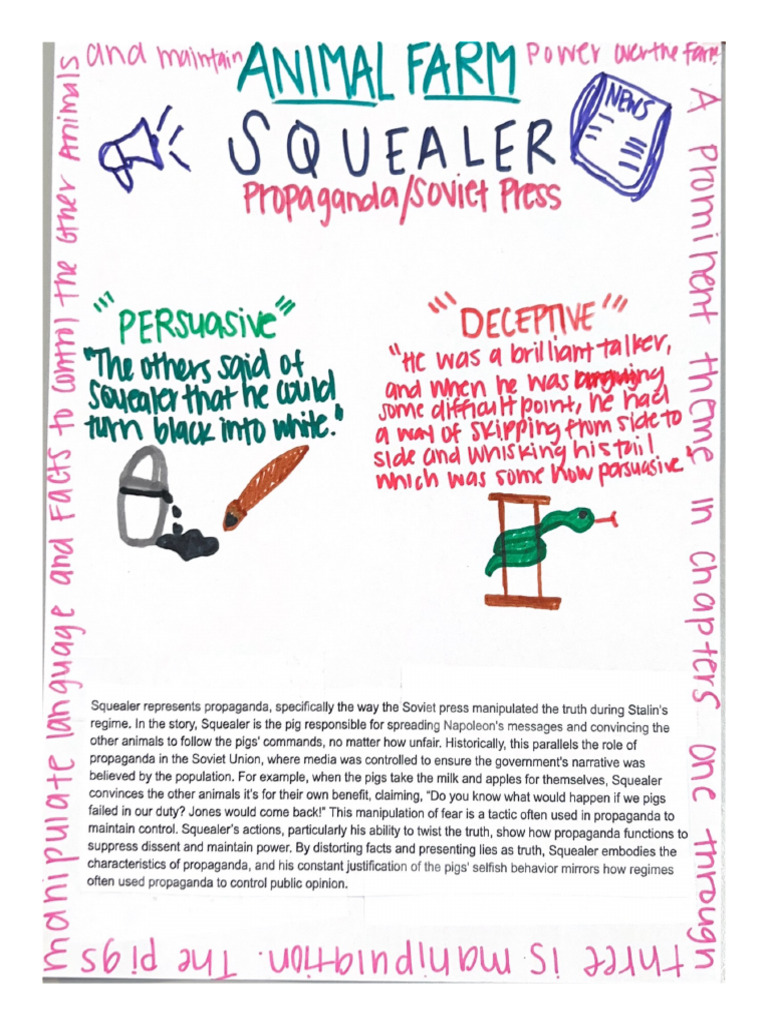 ANIMAL FARM
SQUEALER
Propaganda/Soviet Press
NEWS
"PERSUASIVE"
"The others said of
Squealer that he could
turn black into white."
"DECEPTIVE"
"He was a brilliant talker,
and when he was
some difficult point, he had
a way of skipping from side to
side and whisking his tail
which was some how persuasive"
Squealer represents propaganda, specifically the way the Soviet press manipulated the truth during Stalin's
regime. In the story, Squealer is the pig responsible for spreading Napoleon's messages and convincing the
other animals to follow the pigs' commands, no matter how unfair. Historically, this parallels the role of
propaganda in the Soviet Union, where media was controlled to ensure the government's narrative was
believed by the population. For example, when the pigs take the milk and apples for themselves, Squealer
convinces the other animals it's for their own benefit, claiming, "Do you know what would happen if we pigs
failed in our duty? Jones would come back!" This manipulation of fear is a tactic often used in propaganda to
maintain control. Squealer's actions, particularly his ability to twist the truth, show how propaganda functions to
suppress dissent and maintain power. By distorting facts and presenting lies as truth, Squealer embodies the
characteristics of propaganda, and his constant justification of the pigs' selfish behavior mirrors how regimes
often used propaganda to control public opinion.
A prominent theme in chapters one through
three is manipulation. The pigs
manipulate language and facts to control the other animals
and maintain
power over the farm.